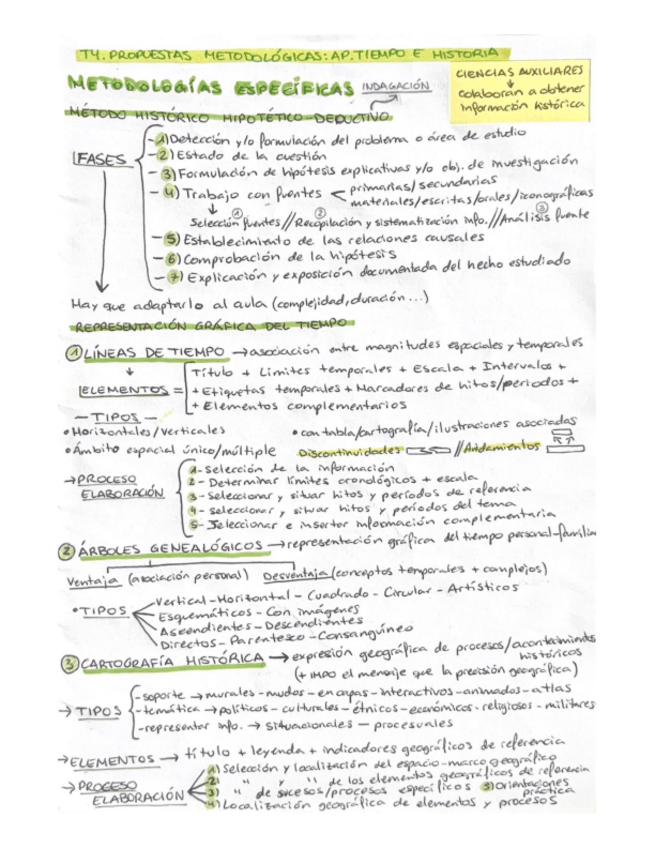 T4. PROPUESTAS METODOLÓGICAS: AP. TIEMPO E HISTORIA
METODOLOGÍAS ESPECÍFICAS INDAGACIÓN
CIENCIAS AUXILIARES
colaboran a obtener
información histórica
MÉTODO HISTÓRICO HIPOTÉTICO-DEDUCTIVO
FASES
- 1) Detección y/o formulación del problema o área de estudio
- 2) Estado de la cuestión
- 3) Formulación de hipótesis explicativas y/o obj. de investigación
- 4) Trabajo con fuentes < primarias/secundarias
materiales/escritas/orales/iconográficas
① ② ③
Selección fuentes // Recopilación y sistematización info. // Análisis fuente
- 5) Establecimiento de las relaciones causales
- 6) Comprobación de la hipótesis
- 7) Explicación y exposición documentada del hecho estudiado
Hay que adaptarlo al aula (complejidad, duración...)
REPRESENTACIÓN GRÁFICA DEL TIEMPO
① LÍNEAS DE TIEMPO → asociación entre magnitudes espaciales y temporales
ELEMENTOS = Título + Límites temporales + Escala + Intervalos +
+ Etiquetas temporales + Marcadores de hitos/periodos +
+ Elementos complementarios
- TIPOS -
• Horizontales/verticales • con tabla/cartografía/ilustraciones asociadas
• Ámbito espacial único/múltiple Discontinuidades // Andamientos
→ PROCESO ELABORACIÓN
1- Selección de la información
2- Determinar límites cronológicos + escala
3- Seleccionar y situar hitos y períodos de referencia
4- Seleccionar y situar hitos y períodos del tema
5- Seleccionar e insertar información complementaria
② ÁRBOLES GENEALÓGICOS → representación gráfica del tiempo personal-familiar
Ventaja (asociación personal) Desventaja (conceptos temporales + complejos)
• TIPOS
Vertical - Horizontal - Cuadrado - Circular - Artísticos
Esquemáticos - Con imágenes
Ascendientes - Descendientes
Directos - Parentesco - Consanguíneo
③ CARTOGRAFÍA HISTÓRICA → expresión geográfica de procesos/acontecimientos
históricos
(+ IMPO el mensaje que la precisión geográfica)
→ TIPOS
- soporte → murales - mudos - en capas - interactivos - animados - atlas
- temática → políticos - culturales - étnicos - económicos - religiosos - militares
- representar info. → situacionales - procesuales
→ ELEMENTOS → título + leyenda + indicadores geográficos de referencia
→ PROCESO ELABORACIÓN
1) Selección y localización del espacio-marco geográfico
2) " y " de los elementos geográficos de referencia
3) " de sucesos/procesos específicos 5) Orientaciones
práctica
4) Localización geográfica de elementos y procesos